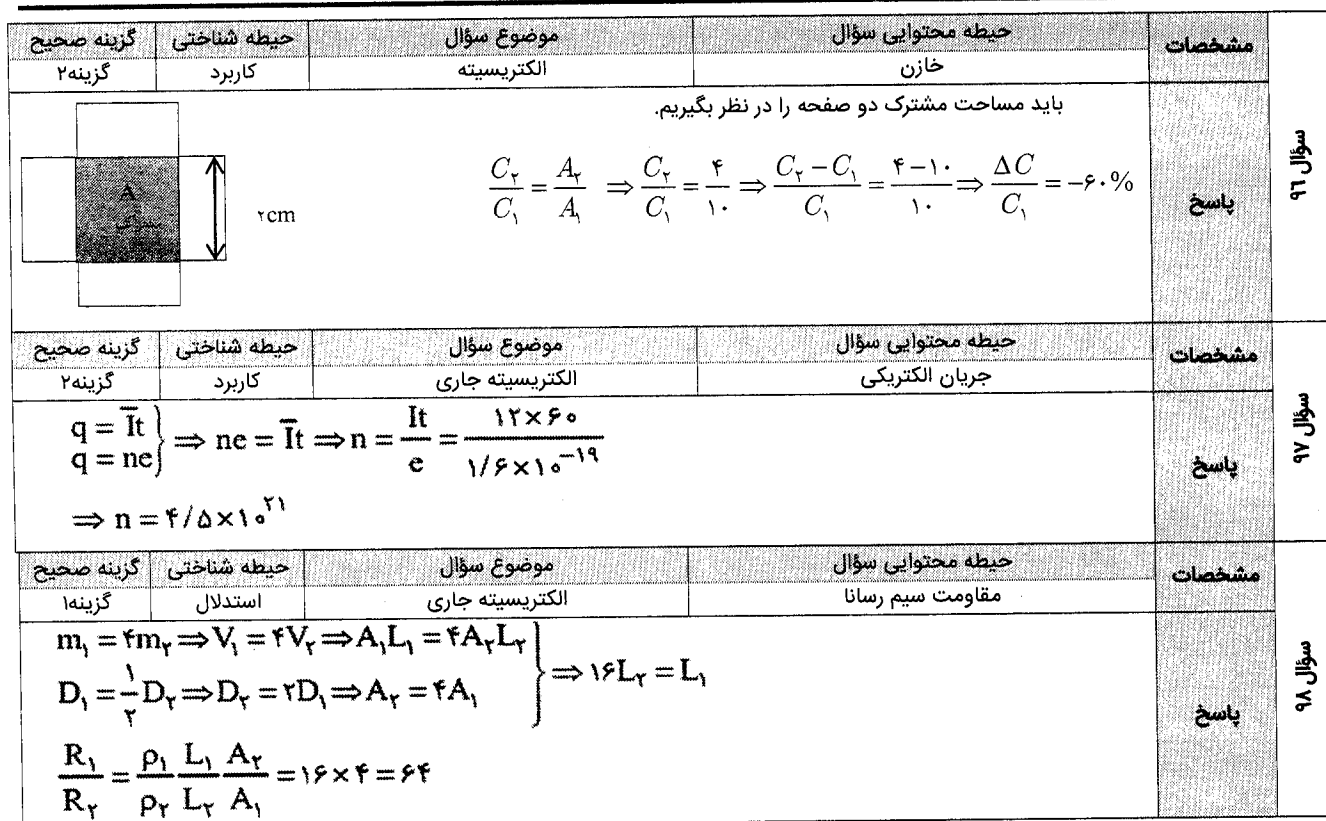 سؤال ۹۶
مشخصات
حیطه محتوایی سؤال موضوع سؤال حیطه شناختی گزینه صحیح
خازن الکتریسیته کاربرد گزینه۲
پاسخ
باید مساحت مشترک دو صفحه را در نظر بگیریم.
C₂/C₁ = A₂/A₁ ⇒ C₂/C₁ = ۴/۱۰ ⇒ (C₂ − C₁)/C₁ = (۴ − ۱۰)/۱۰ ⇒ ΔC/C₁ = −۶۰%
A
۲cm
سؤال ۹۷
مشخصات
حیطه محتوایی سؤال موضوع سؤال حیطه شناختی گزینه صحیح
جریان الکتریکی الکتریسیته جاری کاربرد گزینه۲
پاسخ
q = I̅t
q = ne} ⇒ ne = I̅t ⇒ n = It/e = (۱۲×۶۰)/(۱/۶×۱۰⁻¹⁹)
⇒ n = ۴/۵×۱۰²¹
سؤال ۹۸
مشخصات
حیطه محتوایی سؤال موضوع سؤال حیطه شناختی گزینه صحیح
مقاومت سیم رسانا الکتریسیته جاری استدلال گزینه۱
پاسخ
m₁ = ۴m₂ ⇒ V₁ = ۴V₂ ⇒ A₁L₁ = ۴A₂L₂
D₁ = ۱/۲ D₂ ⇒ D₂ = ۲D₁ ⇒ A₂ = ۴A₁} ⇒ ۱۶L₂ = L₁
R₁/R₂ = ρ₁/ρ₂ L₁/L₂ A₂/A₁ = ۱۶×۴ = ۶۴